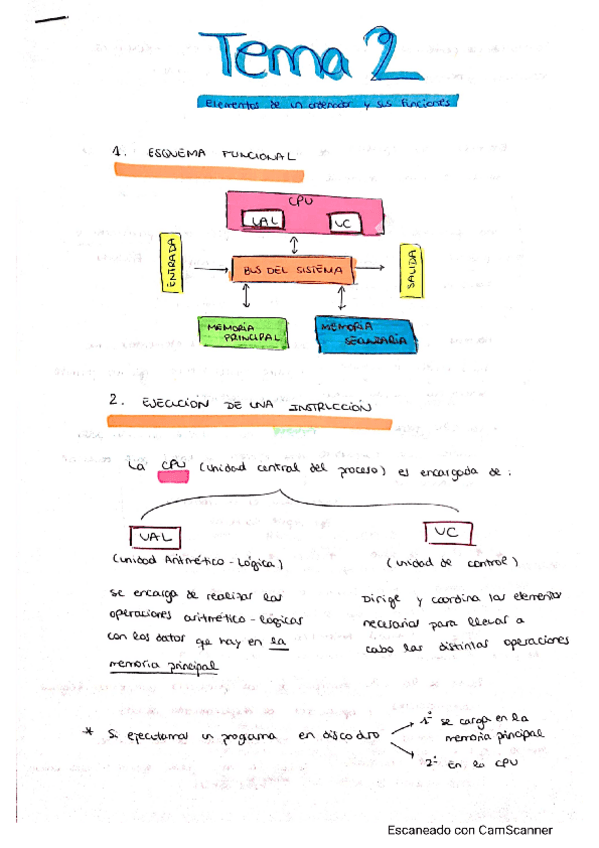 Tema 2
Elementos de un ordenador y sus funciones
1. ESQUEMA FUNCIONAL
CPU
UAL
UC
ENTRADA
BUS DEL SISTEMA
SALIDA
MEMORIA
PRINCIPAL
MEMORIA
SECUNDARIA
2. EJECUCIÓN DE UNA INSTRUCCIÓN
La CPU (unidad central del proceso) es encargada de:
UAL
UC
(unidad Aritmético-Lógica)
(unidad de control)
se encarga de realizar las
operaciones aritmético-lógicas
con los datos que hay en la
memoria principal
Dirige y coordina los elementos
necesarios para llevar a
cabo las distintas operaciones
* Si ejecutamos un programa en disco duro
1º se carga en la
memoria principal
2º en la CPU
Escaneado con CamScanner